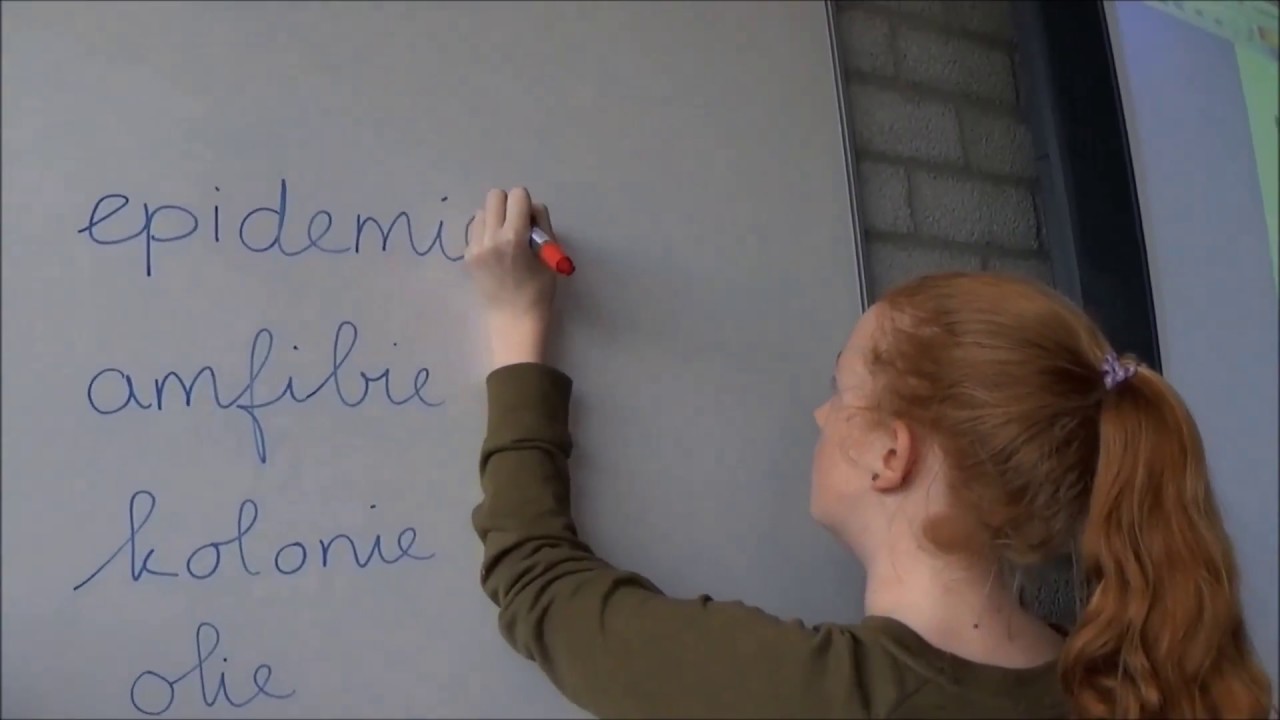 epidemie
amfibie
kolonie
olie